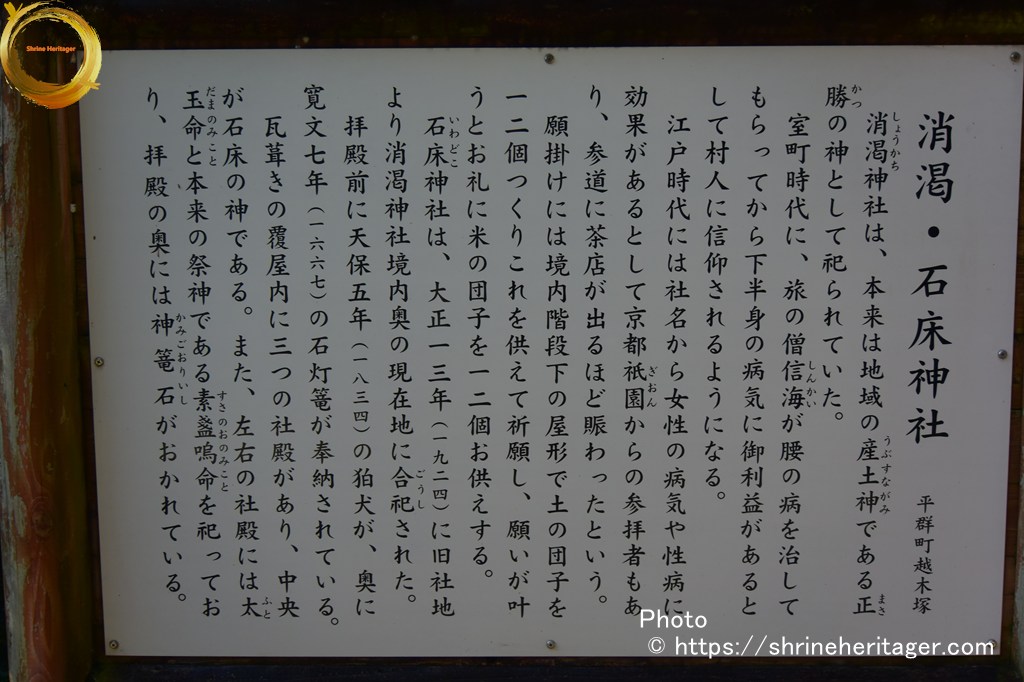 Shrine Heritager
消渇・石床神社
平群町越木塚
消渇神社は、本来は地域の産土神である正
しょうかち
うぶすながみ
まさ
勝の神として祀られていた。
かつ
室町時代に、旅の僧信海が腰の病を治して
しんかい
もらってから下半身の病気に御利益があると
して村人に信仰されるようになる。
江戸時代には社名から女性の病気や性病に
効果があるとして京都祇園からの参拝者もあ
ぎおん
り、参道に茶店が出るほど賑わったという。
願掛けには境内階段下の屋形で土の団子を
一二個つくりこれを供えて祈願し、願いが叶
うとお礼に米の団子を一二個お供えする。
石床神社は、大正一三年（一九二四）に旧社地
いわどこ
より消渇神社境内奥の現在地に合祀された。
ごうし
拝殿前に天保五年（一八三四）の狛犬が、奥に
寛文七年（一六六七）の石灯篭が奉納されている。
瓦葺きの覆屋内に三つの社殿があり、中央
が石床の神である。また、左右の社殿には太
ふと
玉命と本来の祭神である素盞嗚命を祀ってお
だまのみこと
すさのおのみこと
り、拝殿の奥には神篭石がおかれている。
い
かみごおりいし
Photo
© https://shrineheritager.com